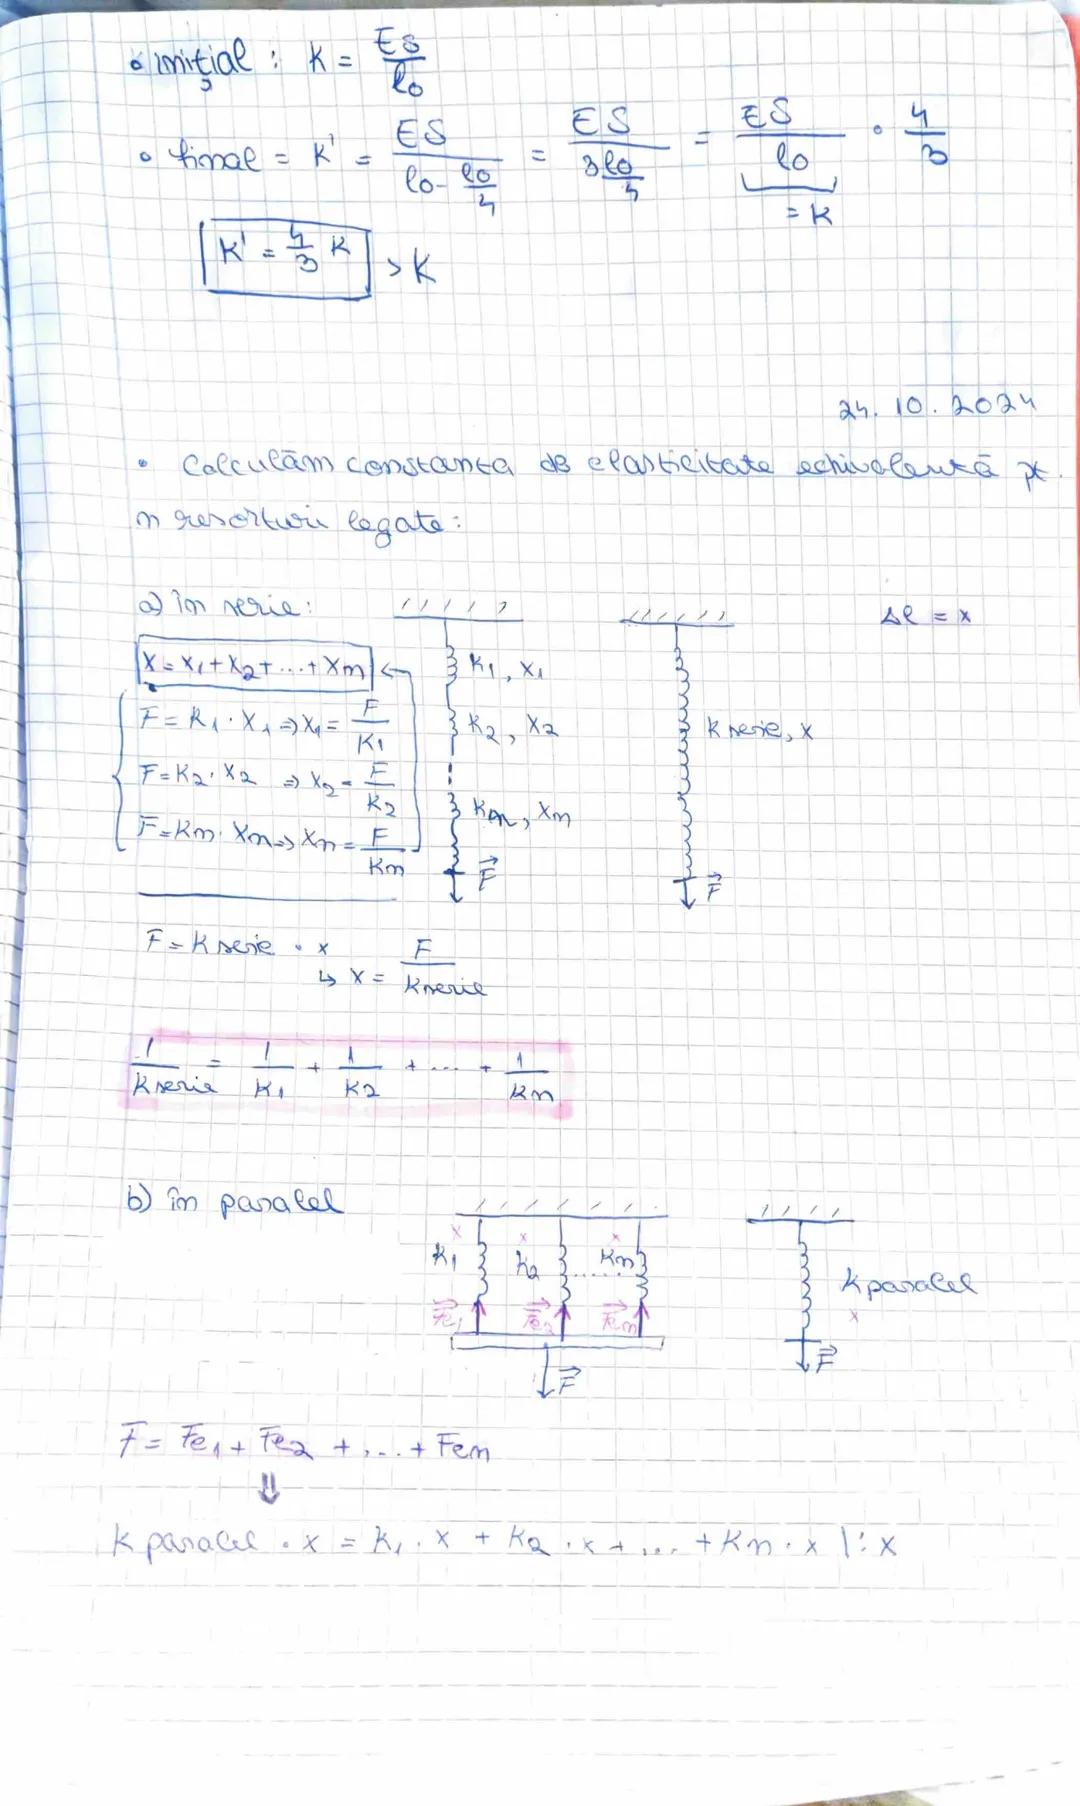 • inițial : K = ES/l0
• final = K' = ES/(l0 - l0/4) = ES/(3l0/4) = ES/l0 · 4/3
= K
K' = 4/3 K > K
24. 10. 2024
• Calculăm constanta de elasticitate echivalentă pt.
n resorturi legate:
a) în serie:
Δl = x
x = x1 + x2 + ... + xn
K1, x1
F = K1 · x1 => x1 = F/K1
K2, x2
K serie, x
F = K2 · x2 => x2 = F/K2
Kn, xn
F = Kn · xn => xn = F/Kn
F
F
F = K serie · x
↳ x = F/K serie
1/K serie = 1/K1 + 1/K2 + ... + 1/Kn
b) în paralel
x x x
K1 K2 ..... Kn
K paralel
x
Fe1 Fe2 Fen
F
F
F = Fe1 + Fe2 + ... + Fen
⇓
K paralel · x = K1 · x + K2 · x + ... + Kn · x |: x